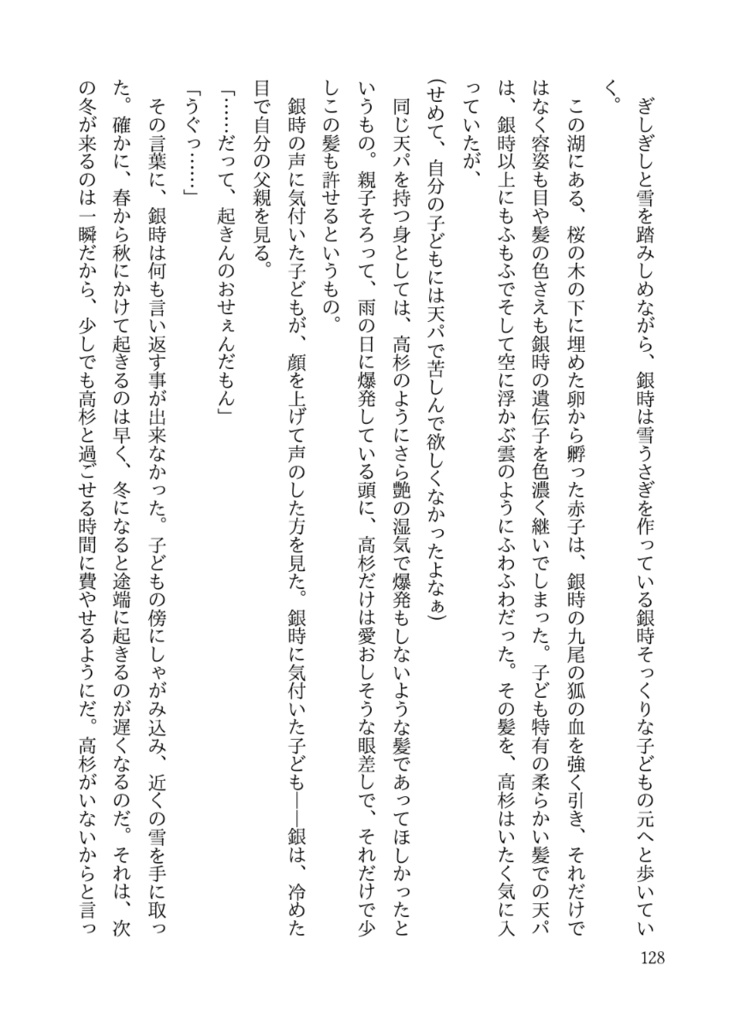 ぎしぎしと雪を踏みしめながら、銀時は雪うさぎを作っている銀時そっくりな子どもの元へと歩いてい
く。
この湖にある、桜の木の下に埋めた卵から孵った赤子は、銀時の九尾の狐の血を強く引き、それだけで
はなく容姿も目や髪の色さえも銀時の遺伝子を色濃く継いでしまった。子ども特有の柔らかい髪での天パ
は、銀時以上にもふもふでそして空に浮かぶ雲のようにふわふわだった。その髪を、高杉はいたく気に入
っていたが、
(せめて、自分の子どもには天パで苦しんで欲しくなかったよなぁ)
同じ天パを持つ身としては、高杉のようにさら艶の湿気で爆発もしないような髪であってほしかったと
いうもの。親子そろって、雨の日に爆発している頭に、高杉だけは愛おしそうな眼差しで、それだけで少
しこの髪も許せるというもの。
銀時の声に気付いた子どもが、顔を上げて声のした方を見た。銀時に気付いた子ども――銀は、冷めた
目で自分の父親を見る。
「……だって、起きんのおせぇんだもん」
「うぐっ……」
その言葉に、銀時は何も言い返す事が出来なかった。子どもの傍にしゃがみ込み、近くの雪を手に取っ
た。確かに、春から秋にかけて起きるのは早く、冬になると途端に起きるのが遅くなるのだ。それは、次
の冬が来るのは一瞬だから、少しでも高杉と過ごせる時間に費やせるようにだ。高杉がいないからと言っ
128